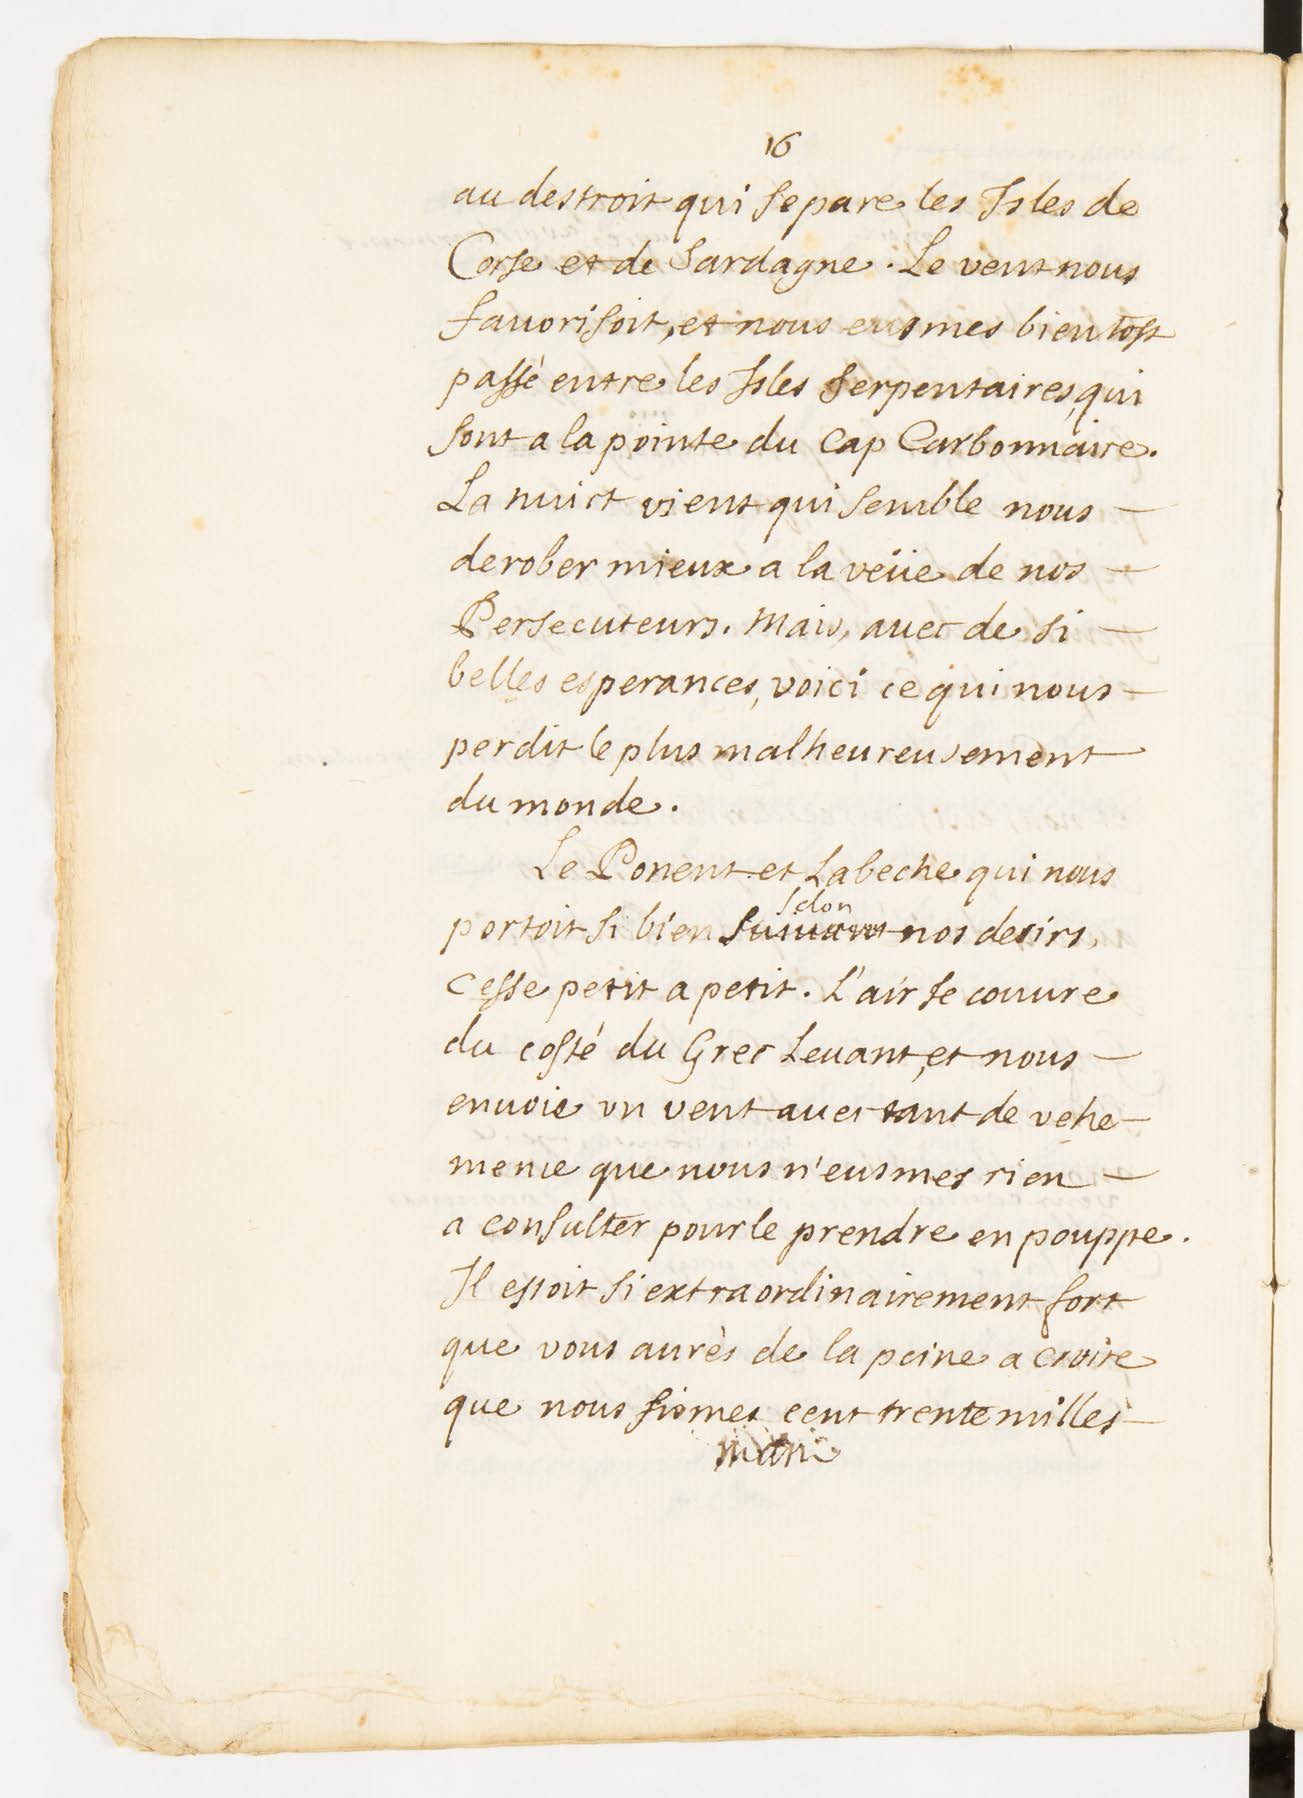 16
au destroit qui separe les Isles de
Corse et de Sardagne. Le vent nous
fauorisoit, et nous eusmes bien tost
passé entre les Isles Serpentaires, qui
sont a la pointe du Cap Carbonnaire.
La nuict vient qui semble nous
derober mieux a la veüe de nos
Persecuteurs. Mais, auec de si
belles esperances, voici ce qui nous
perdit le plus malheureusement
du monde.
Le Ponent et Labeche qui nous
selon
portoit si bien suiuant nos desirs,
cesse petit a petit. L'air se couure
du costé du Grec Leuant, et nous
enuoie vn vent auec tant de vehe-
mence que nous n'eusmes rien
a consulter pour le prendre en pouppe.
Il estoit si extraordinairement fort
que vous aurès de la peine a croire
que nous fismes cent trente milles